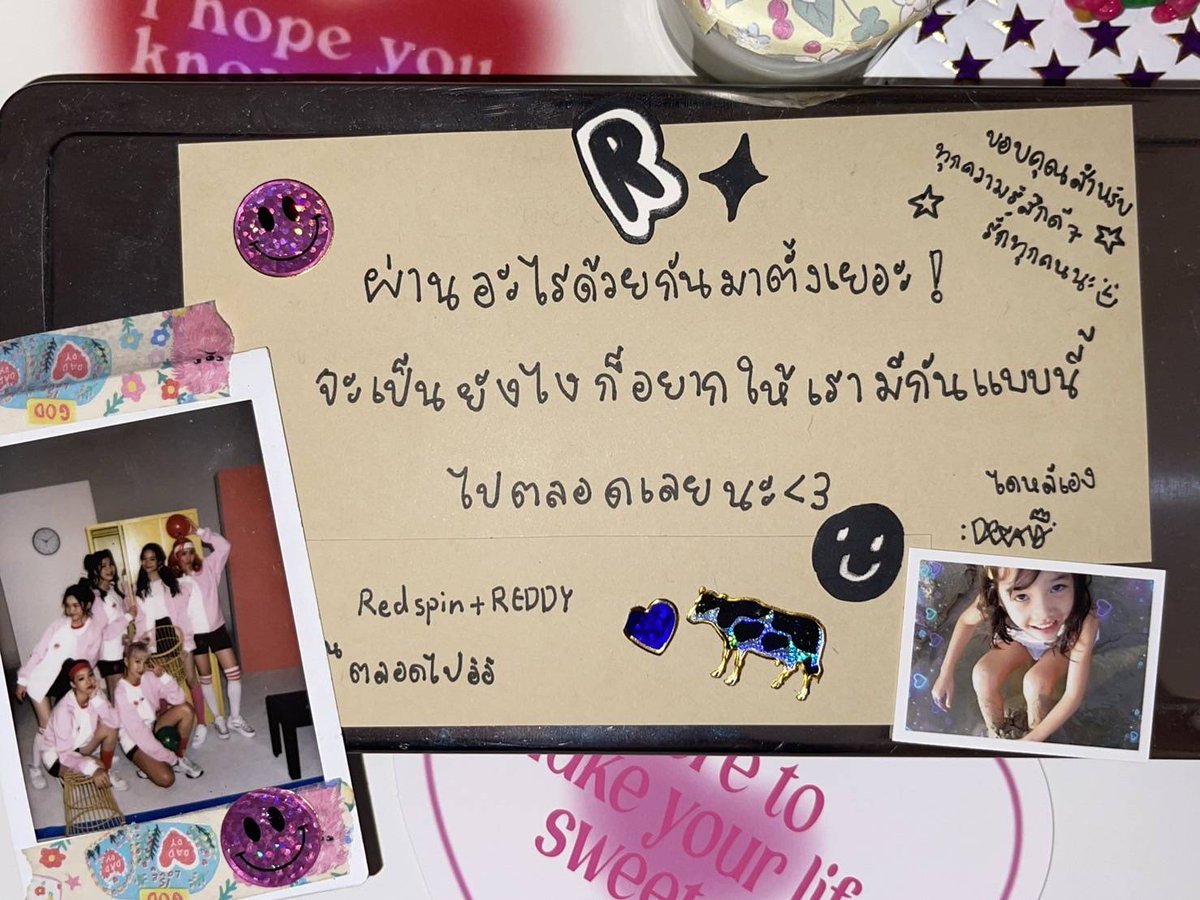 I hope you
know
R
ขอบคุณสำหรับ
ทุกความรู้สึกดีๆ
รักทุกคนนะ
ผ่านอะไรด้วยกันมาตั้งเยอะ!
จะเป็นยังไงก็อยากให้เรามีกันแบบนี้
ไปตลอดเลยนะ<3
ไดหมีเอง
Redspin+REDDY
ตลอดไปอิอิ
GOD
DAD
DY
to
make your life
sweet